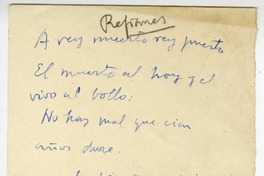 Refranes
A rey muerto rey puesto
El muerto al hoyo y el
vivo al bollo:
No hay mal que cien
años dure.